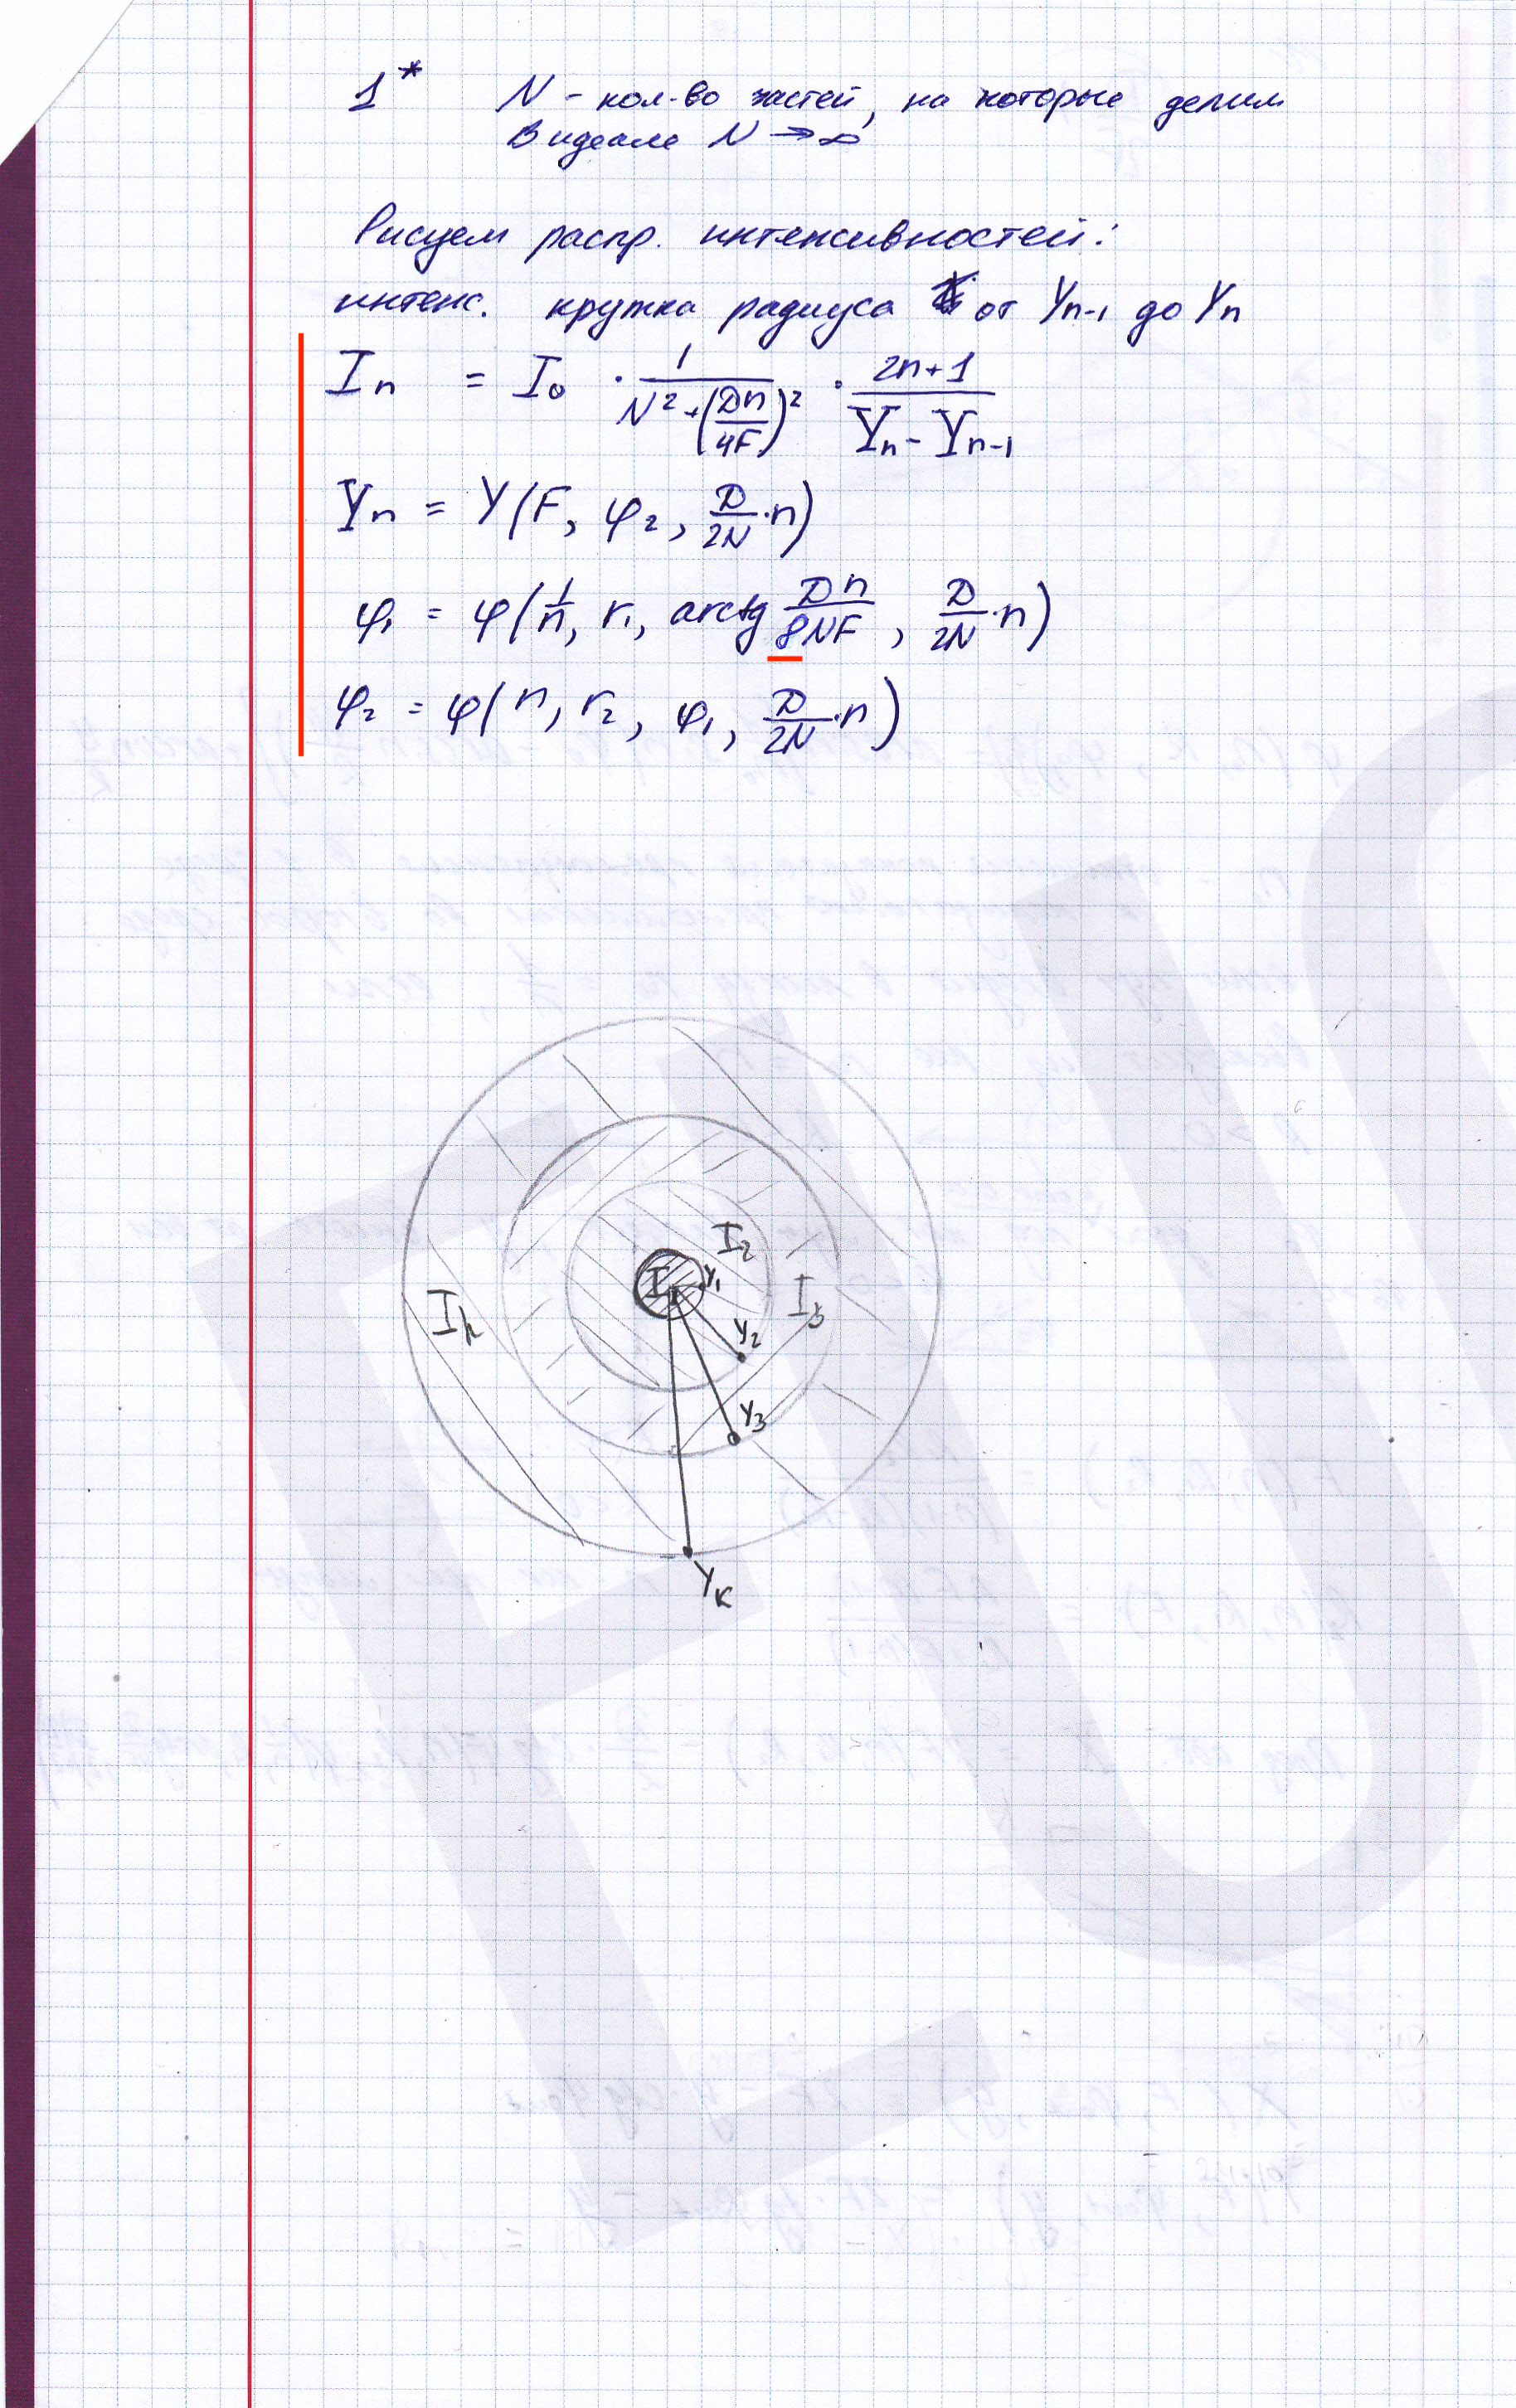 1*  N - кол-во частей, на которые делим
В идеале N → ∞
Рисуем распр. интенсивностей:
интенс. кружка радиуса от Yn-1 до Yn
In = I0 · 1/(N² + (Dn/4F)²) · (2n+1)/(Yn - Yn-1)
Yn = Y(F, φ2, D/2N ·n)
φ1 = φ(1/n, r1, arctg Dn/8NF, D/2N ·n)
φ2 = φ(n, r2, φ1, D/2N ·n)
I2
I1 Y1
Ik I3
Y2
Y3
Yк